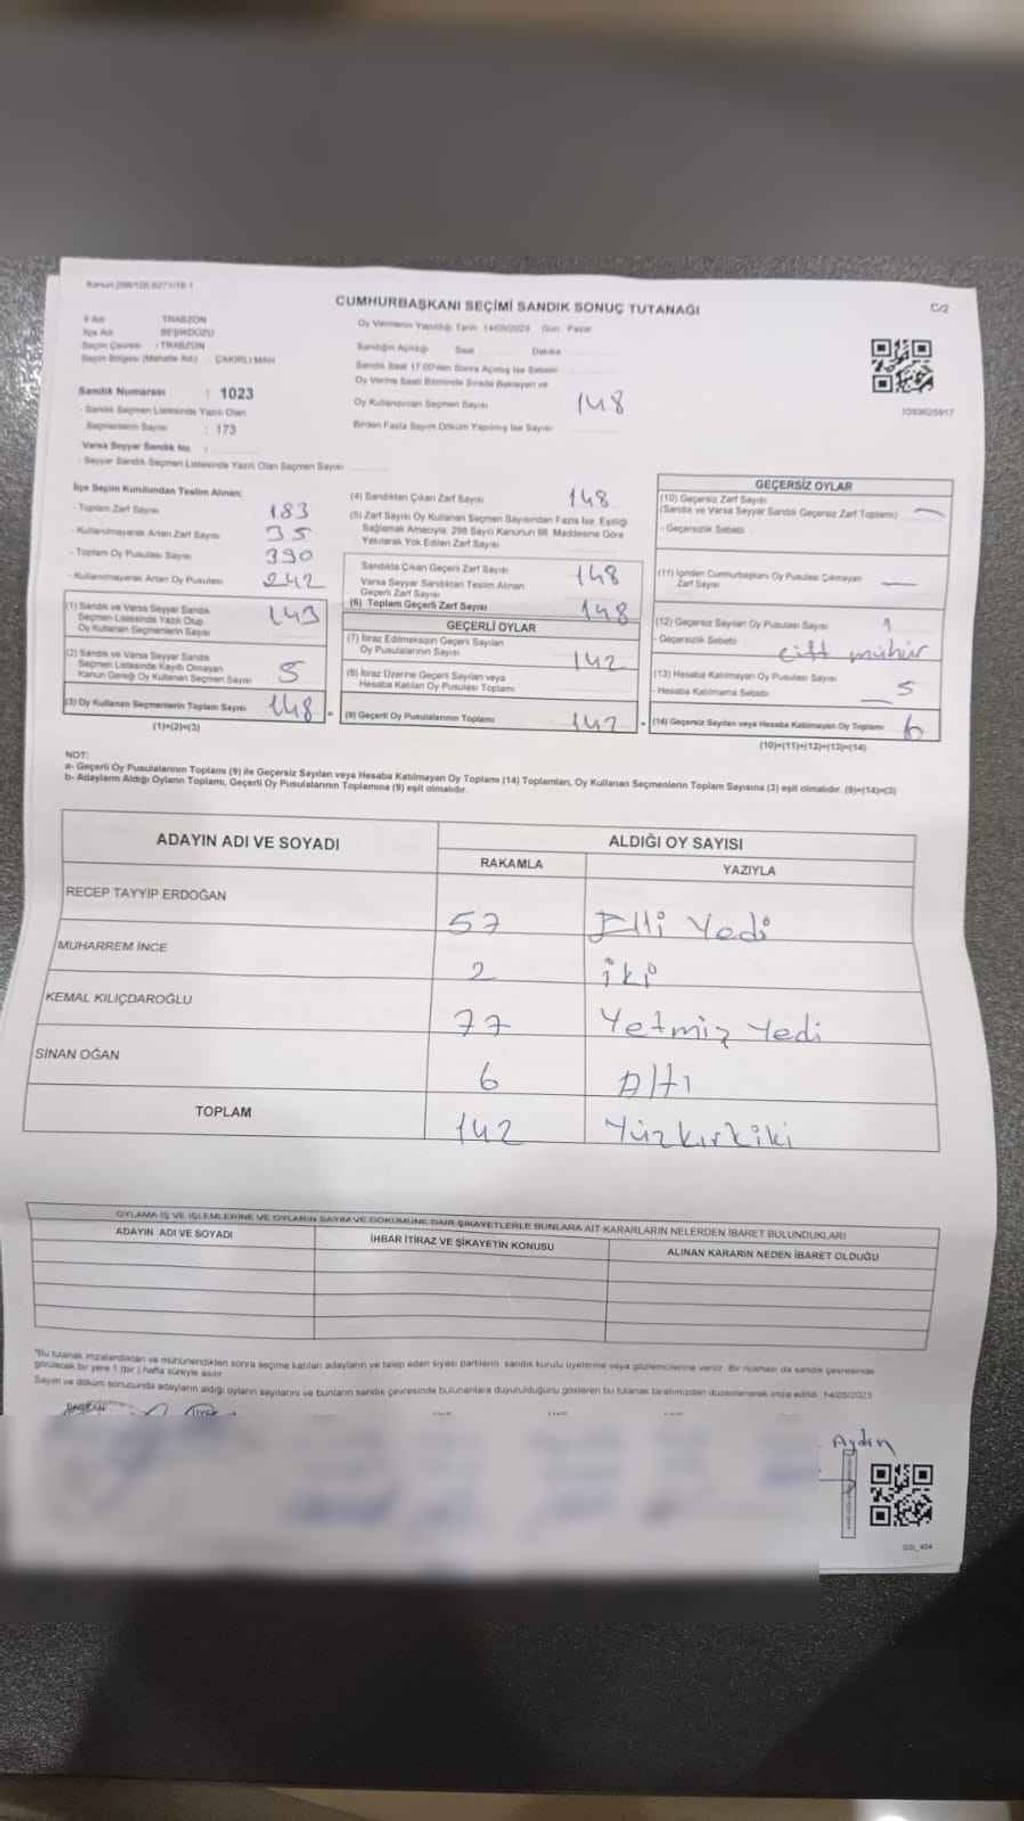 CUMHURBAŞKANI SEÇİMİ SANDIK SONUÇ TUTANAĞI
C/2
İl Adı TRABZON
İlçe Adı BEŞİKDÜZÜ
Seçim Çevresi : TRABZON
Seçim Bölgesi (Mahalle Adı) ÇAKIRLI MAH
Oy Vermenin Yapıldığı Tarih 14/05/2023 Gün Pazar
Sandığın Açıldığı Saat Dakika
Sandık Saat 17.00'den Sonra Açılmış İse Sebebi
Oy Verme Saati Bitiminde Sırada Bekleyen ve
Oy Kullandırılan Seçmen Sayısı 148
Birden Fazla Sayım Döküm Yapılmış İse Sayısı
Sandık Numarası : 1023
Sandık Seçmen Listesinde Yazılı Olan
Seçmenlerin Sayısı : 173
Varsa Seyyar Sandık No :
- Seyyar Sandık Seçmen Listesinde Yazılı Olan Seçmen Sayısı
İlçe Seçim Kurulundan Teslim Alınan:
- Toplam Zarf Sayısı 183
- Kullanılmayarak Artan Zarf Sayısı 35
- Toplam Oy Pusulası Sayısı 390
- Kullanılmayarak Artan Oy Pusulası 242
(1) Sandık ve Varsa Seyyar Sandık
Seçmen Listesinde Yazılı Olup
Oy Kullanan Seçmenlerin Sayısı 143
(2) Sandık ve Varsa Seyyar Sandık
Seçmen Listesinde Kaydı Olmayan
Kanun Gereği Oy Kullanan Seçmen Sayısı 5
(3) Oy Kullanan Seçmenlerin Toplam Sayısı 148
(1)+(2)=(3)
(4) Sandıktan Çıkan Zarf Sayısı 148
(5) Zarf Sayısı Oy Kullanan Seçmen Sayısından Fazla İse, Eşitliği
Sağlamak Amacıyla, 298 Sayılı Kanunun 98. Maddesine Göre
Yakılarak Yok Edilen Zarf Sayısı
Sandıkta Çıkan Geçerli Zarf Sayısı 148
Varsa Seyyar Sandıktan Teslim Alınan
Geçerli Zarf Sayısı
(6) Toplam Geçerli Zarf Sayısı 148
GEÇERLİ OYLAR
(7) İtiraz Edilmeksizin Geçerli Sayılan
Oy Pusulalarının Sayısı 142
(8) İtiraz Üzerine Geçerli Sayılan veya
Hesaba Katılan Oy Pusulası Toplamı
(9) Geçerli Oy Pusulalarının Toplamı 142
GEÇERSİZ OYLAR
(10) Geçersiz Zarf Sayısı
(Sandık ve Varsa Seyyar Sandık Geçersiz Zarf Toplamı) —
- Geçersizlik Sebebi
(11) İçinden Cumhurbaşkanı Oy Pusulası Çıkmayan
Zarf Sayısı —
(12) Geçersiz Sayılan Oy Pusulası Sayısı 1
- Geçersizlik Sebebi çift mühür
(13) Hesaba Katılmayan Oy Pusulası Sayısı 5
- Hesaba Katılmama Sebebi —
(14) Geçersiz Sayılan veya Hesaba Katılmayan Oy Toplamı 6
(10)+(11)+(12)+(13)=(14)
NOT:
a- Geçerli Oy Pusulalarının Toplamı (9) ile Geçersiz Sayılan veya Hesaba Katılmayan Oy Toplamı (14) Toplamları, Oy Kullanan Seçmenlerin Toplam Sayısına (3) eşit olmalıdır. (9)+(14)=(3)
b- Adayların Aldığı Oyların Toplamı, Geçerli Oy Pusulalarının Toplamına (9) eşit olmalıdır.
ADAYIN ADI VE SOYADI
ALDIĞI OY SAYISI
RAKAMLA YAZIYLA
RECEP TAYYİP ERDOĞAN 57 Elli Yedi
MUHARREM İNCE 2 iki
KEMAL KILIÇDAROĞLU 77 Yetmiş Yedi
SİNAN OĞAN 6 Altı
TOPLAM 142 Yüzkırkiki
OYLAMA İŞ VE İŞLEMLERİNE VE OYLARIN SAYIM VE DÖKÜMÜNE DAİR ŞİKAYETLERLE BUNLARA AİT KARARLARIN NELERDEN İBARET BULUNDUKLARI
ADAYIN ADI VE SOYADI
İHBAR İTİRAZ VE ŞİKAYETİN KONUSU
ALINAN KARARIN NEDEN İBARET OLDUĞU
"Bu tutanak imzalandıktan ve mühürlendikten sonra seçime katılan adayların ve talep eden siyasi partilerin sandık kurulu üyelerine veya gözlemcilerine verilir. Bir nüshası da sandık çevresinde
görülecek bir yere 1 (bir) hafta süreyle asılır
Sayım ve döküm sonucunda adayların aldığı oyların sayılarını ve bunların sandık çevresinde bulunanlara duyurulduğunu gösteren bu tutanak tarafımızdan düzenlenerek imza edildi. 14/05/2023
BAŞKAN
Aydın